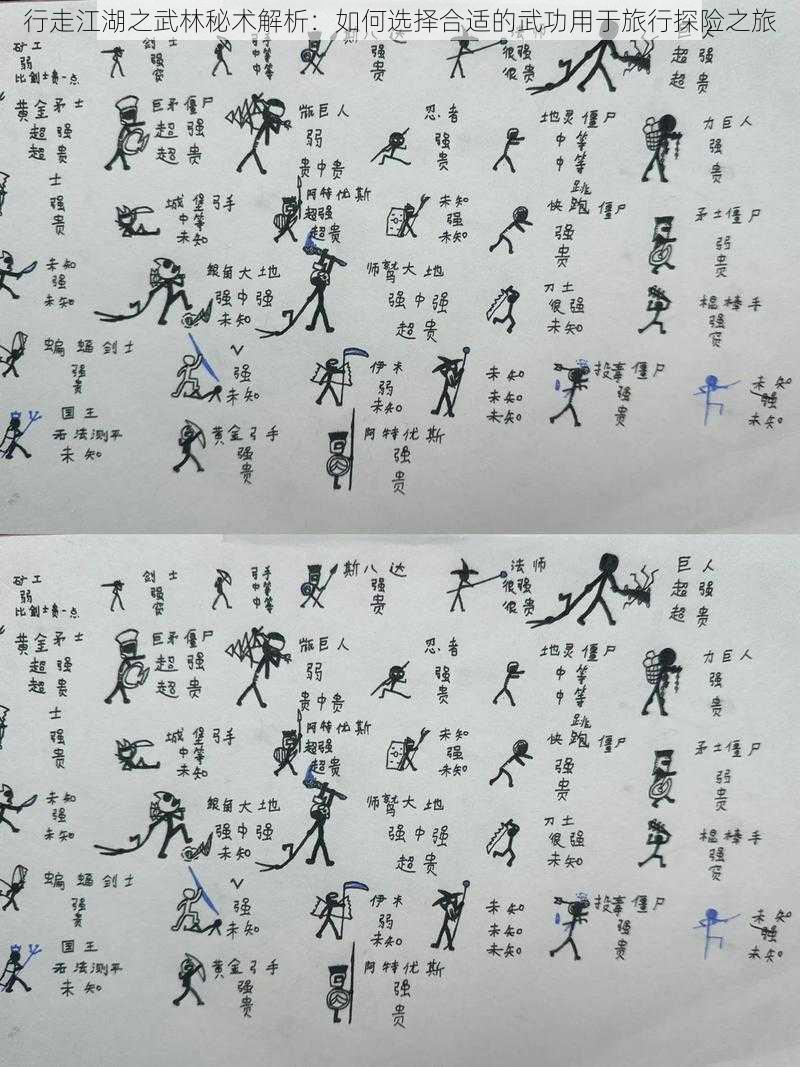 行走江湖之武林秘术解析：如何选择合适的武功用于旅行探险之旅
矿工
弱
比剑士贵一点
强
贫
弓手
中等
中等
斯八达
强
贵
法师
很强
很贵
巨人
超强
超贵
黄金矛士
超强
超贵
巨矛僵尸
超强
超贵
巨人
弱
贵中贵
忍者
强
贵
地灵僵尸
中等
中等
力巨人
强
贵
士
强
贵
城堡弓手
中等
未知
阿特优斯
超强
超贵
未知
强
未知
跳
快跑僵尸
强
贵
矛士僵尸
弱
贵
未知
强
未知
银角大地
强中强
未知
师鹫大地
强中强
超贵
刀士
很强
未知
棍棒手
强
贫
蝙蝠剑士
强
贵
V
强
未知
伊未
弱
未知
未知
未知
未知
投毒僵尸
强
贵
未知
强
未知
国王
无法测平
未知
黄金弓手
强
贵
阿特优斯
强
贵
矿工
弱
比剑士贵一点
剑士
强
贫
弓手
中等
中等
斯八达
强
贵
法师
很强
很贵
巨人
超强
超贵
黄金矛士
超强
超贵
巨矛僵尸
超强
超贵
巨人
弱
贵中贵
忍者
强
贵
地灵僵尸
中等
中等
力巨人
强
贵
士
强
贵
城堡弓手
中等
未知
阿特优斯
超强
超贵
未知
强
未知
跳
快跑僵尸
强
贵
矛士僵尸
弱
贵
未知
强
未知
银角大地
强中强
未知
师鹫大地
强中强
超贵
刀士
很强
未知
棍棒手
强
贫
蝙蝠剑士
强
贵
V
强
未知
伊未
弱
未知
未知
未知
未知
投毒僵尸
强
贵
未知
强
未知
国王
无法测平
未知
黄金弓手
强
贵
阿特优斯
强
贵